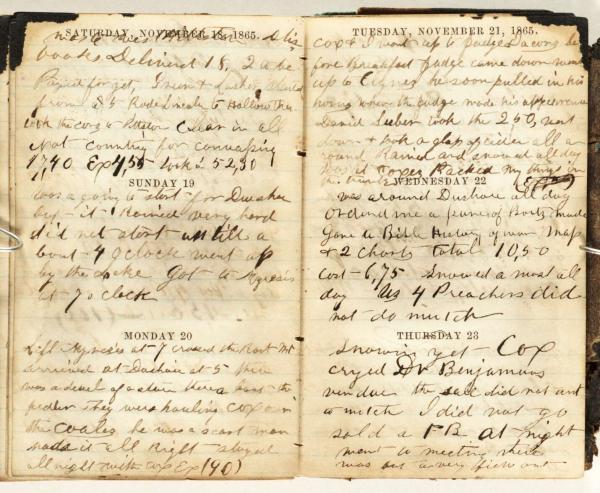 SATURDAY, NOVEMBER 18, 1865.
books Delivered 18, 2 a be
from a 5 Rode Dinely to Hallow the
took the Cars to Pittston Clear in all
spot country for convassing
17,40 Ex 4,55 took in 52,30
SUNDAY 19
was a going to start for Dushore
but it Rained very hard
did not start untill a
bout 4 Oclock went up
by the Lake Got to
at 7 o clock
MONDAY 20
Left at 7 crossed the Mt
arrived at Dushore at 5 there
was a devel of a stew there about the
pedler They were hauling Cox over
the Coales he was a scart man
made it all Right stayed
all night with Cox Ex (40)
TUESDAY, NOVEMBER 21, 1865.
Cox & I went up to Judge Jacoby be
fore breakfast Judge came down went
up to he soon pulled in his
horns when the Judge made his appearence
Daniel took the 250, went
down & took a glass of cider all a
round, Rained and snowed all day
Packed my things in
the trunk
WEDNESDAY 22
was around Dushore all day
Ordered me a pare of Boots, made
Gave a Bible History of war Map
& 2 charts total 10,50
cost 6,75 Snowed a most all
day Us 4 Preachers did
not do mutch
THURSDAY 23
Snowing yet Cox
cryed Dr Benjamins
vendue the sale did not amt
to mutch I did not go
sold a F B. at night
went to meeting there
was but a very few out